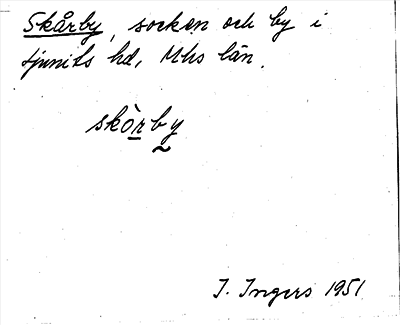 Skårby, socken och by i
Ljunits hd, Mhs län.
skò̠rby̰
I. Ingers 1951